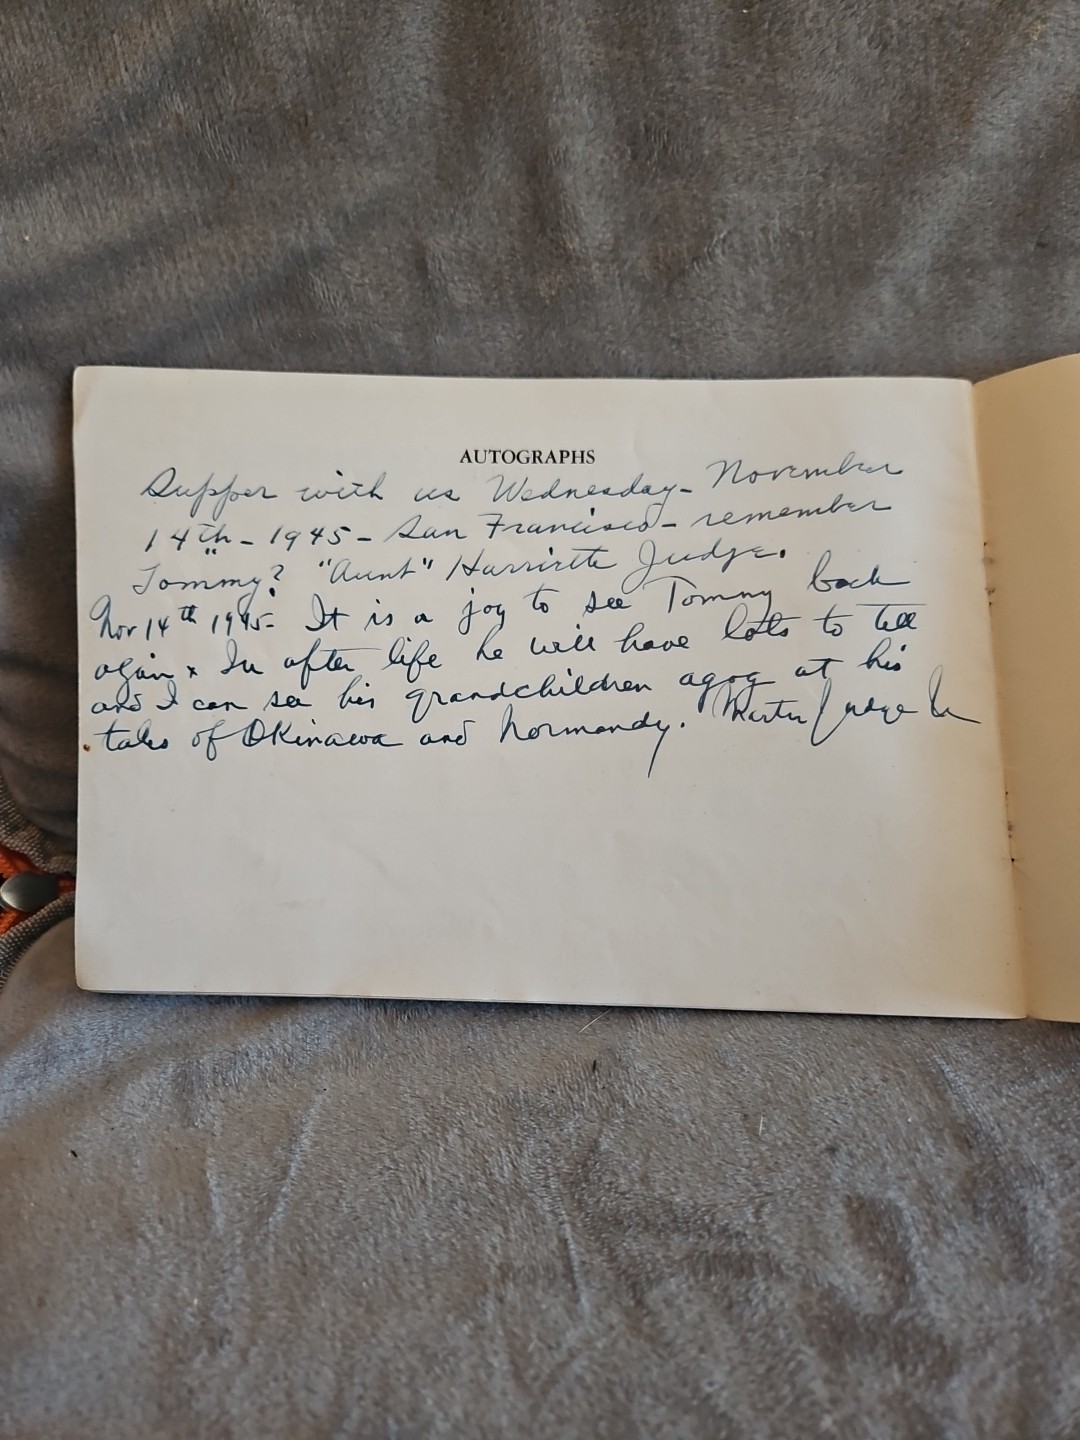 AUTOGRAPHS
Supper with us Wednesday - November
14th - 1945 - San Francisco - remember
Tommy? "Aunt" Harriette Judge.
Nov 14th 1945 - It is a joy to see Tommy back
again x In after life he will have lots to tell
and I can see his grandchildren agog at his
tales of Okinawa and Normandy. Martin Judge Jr